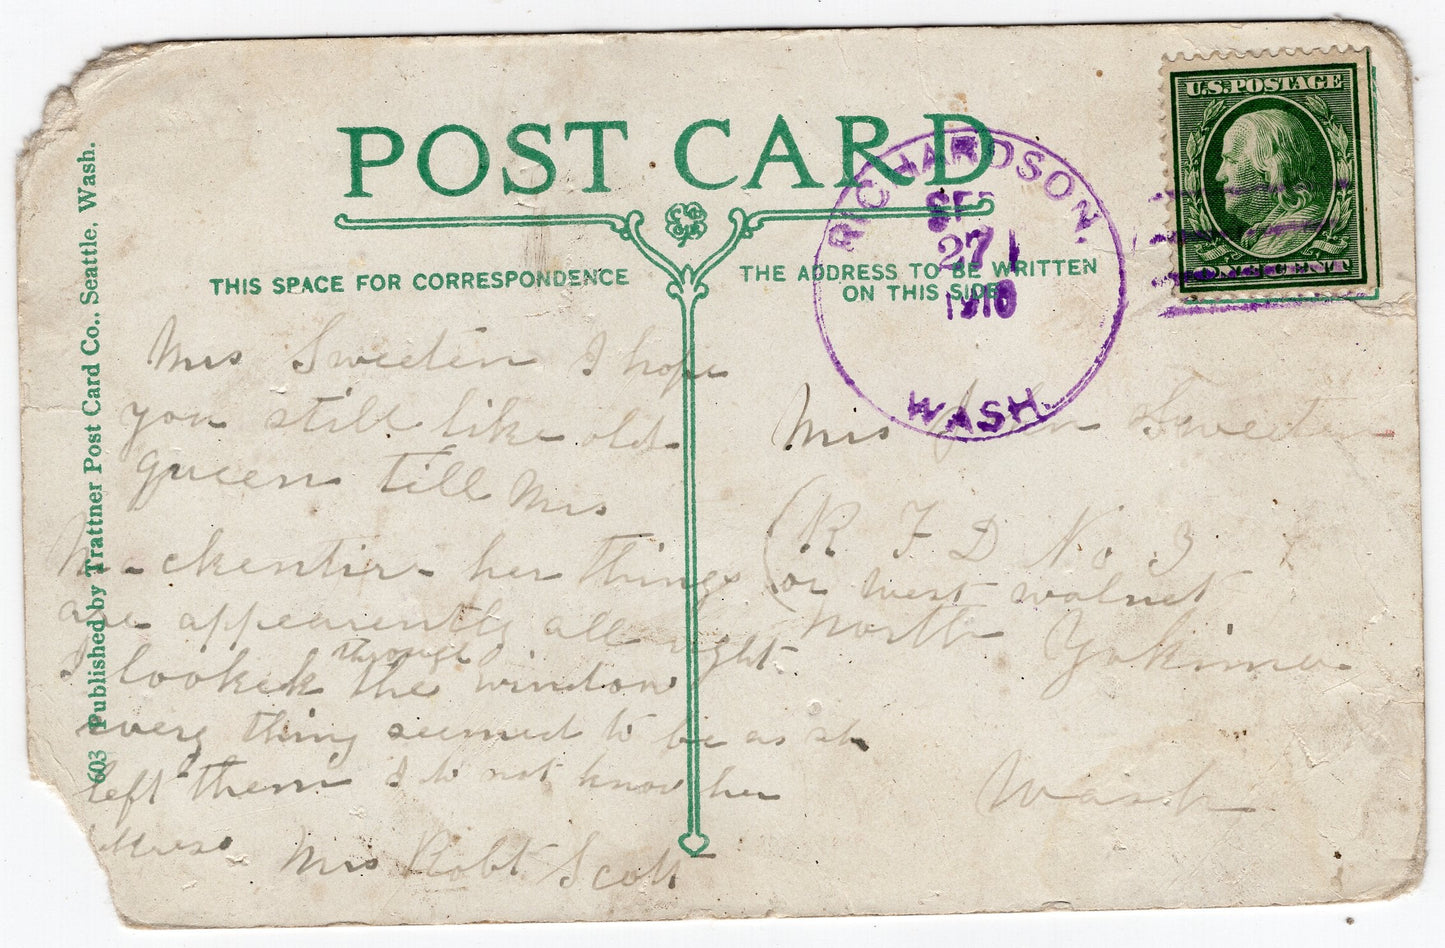 POST CARD
THIS SPACE FOR CORRESPONDENCE
THE ADDRESS TO BE WRITTEN
ON THIS SIDE
603 Published by Trattner Post Card Co., Seattle, Wash.
U.S. POSTAGE
ONE CENT
RICHARDSON,
SEP
27
1910
WASH.
Mrs Sweeten I hope
you still like old
queen till Mrs
Mackentir her things
are appearently all right
I looked through the window
every thing seemed to be as sh
left them I do not know her
Mrs Robt Scott
Mrs John Sweeten
(R F D No 3
or west walnut
North Yakima
Wash